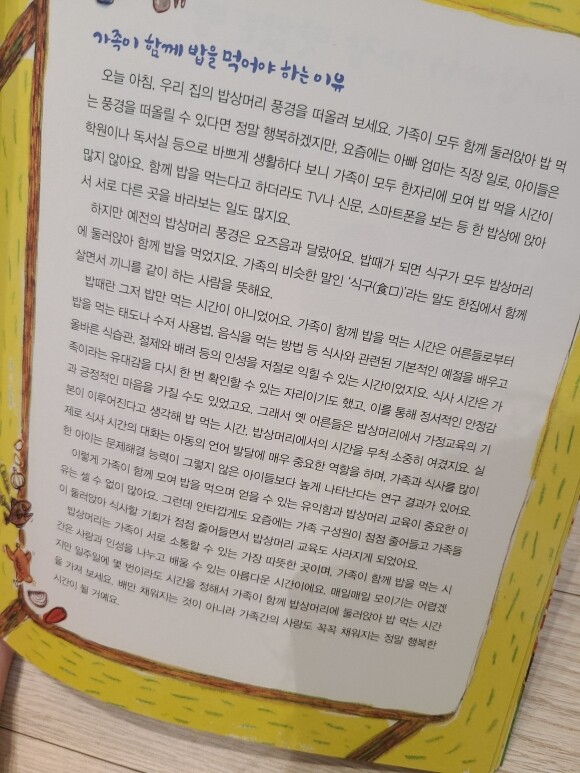 가족이 함께 밥을 먹어야 하는 이유
오늘 아침, 우리 집의 밥상머리 풍경을 떠올려 보세요. 가족이 모두 함께 둘러앉아 밥 먹
는 풍경을 떠올릴 수 있다면 정말 행복하겠지만, 요즘에는 아빠 엄마는 직장 일로, 아이들은
학원이나 독서실 등으로 바쁘게 생활하다 보니 가족이 모두 한자리에 모여 밥 먹을 시간이
많지 않아요. 함께 밥을 먹는다고 하더라도 TV나 신문, 스마트폰을 보는 등 한 밥상에 앉아
서 서로 다른 곳을 바라보는 일도 많지요.
하지만 예전의 밥상머리 풍경은 요즈음과 달랐어요. 밥때가 되면 식구가 모두 밥상머리
에 둘러앉아 함께 밥을 먹었지요. 가족의 비슷한 말인 '식구(食口)'라는 말도 한집에서 함께
살면서 끼니를 같이 하는 사람을 뜻해요.
밥때란 그저 밥만 먹는 시간이 아니었어요. 가족이 함께 밥을 먹는 시간은 어른들로부터
밥을 먹는 태도나 수저 사용법, 음식을 먹는 방법 등 식사와 관련된 기본적인 예절을 배우고
올바른 식습관, 절제와 배려 등의 인성을 저절로 익힐 수 있는 시간이었지요. 식사 시간은 가
족이라는 유대감을 다시 한 번 확인할 수 있는 자리이기도 했고, 이를 통해 정서적인 안정감
과 긍정적인 마음을 가질 수도 있었고요. 그래서 옛 어른들은 밥상머리에서 가정교육의 기
본이 이루어진다고 생각해 밥 먹는 시간, 밥상머리에서의 시간을 무척 소중히 여겼지요. 실
제로 식사 시간의 대화는 아동의 언어 발달에 매우 중요한 역할을 하며, 가족과 식사를 많이
한 아이는 문제해결 능력이 그렇지 않은 아이들보다 높게 나타난다는 연구 결과가 있어요.
이렇게 가족이 함께 모여 밥을 먹으며 얻을 수 있는 유익함과 밥상머리 교육이 중요한 이
유는 셀 수 없이 많아요. 그런데 안타깝게도 요즘에는 가족 구성원이 점점 줄어들고 가족들
이 둘러앉아 식사할 기회가 점점 줄어들면서 밥상머리 교육도 사라지게 되었어요.
밥상머리는 가족이 서로 소통할 수 있는 가장 따뜻한 곳이며, 가족이 함께 밥을 먹는 시
간은 사랑과 인성을 나누고 배울 수 있는 아름다운 시간이에요. 매일매일 모이기는 어렵겠
지만 일주일에 몇 번이라도 시간을 정해서 가족이 함께 밥상머리에 둘러앉아 밥 먹는 시간
을 가져 보세요. 배만 채워지는 것이 아니라 가족간의 사랑도 꼭꼭 채워지는 정말 행복한
시간이 될 거예요.